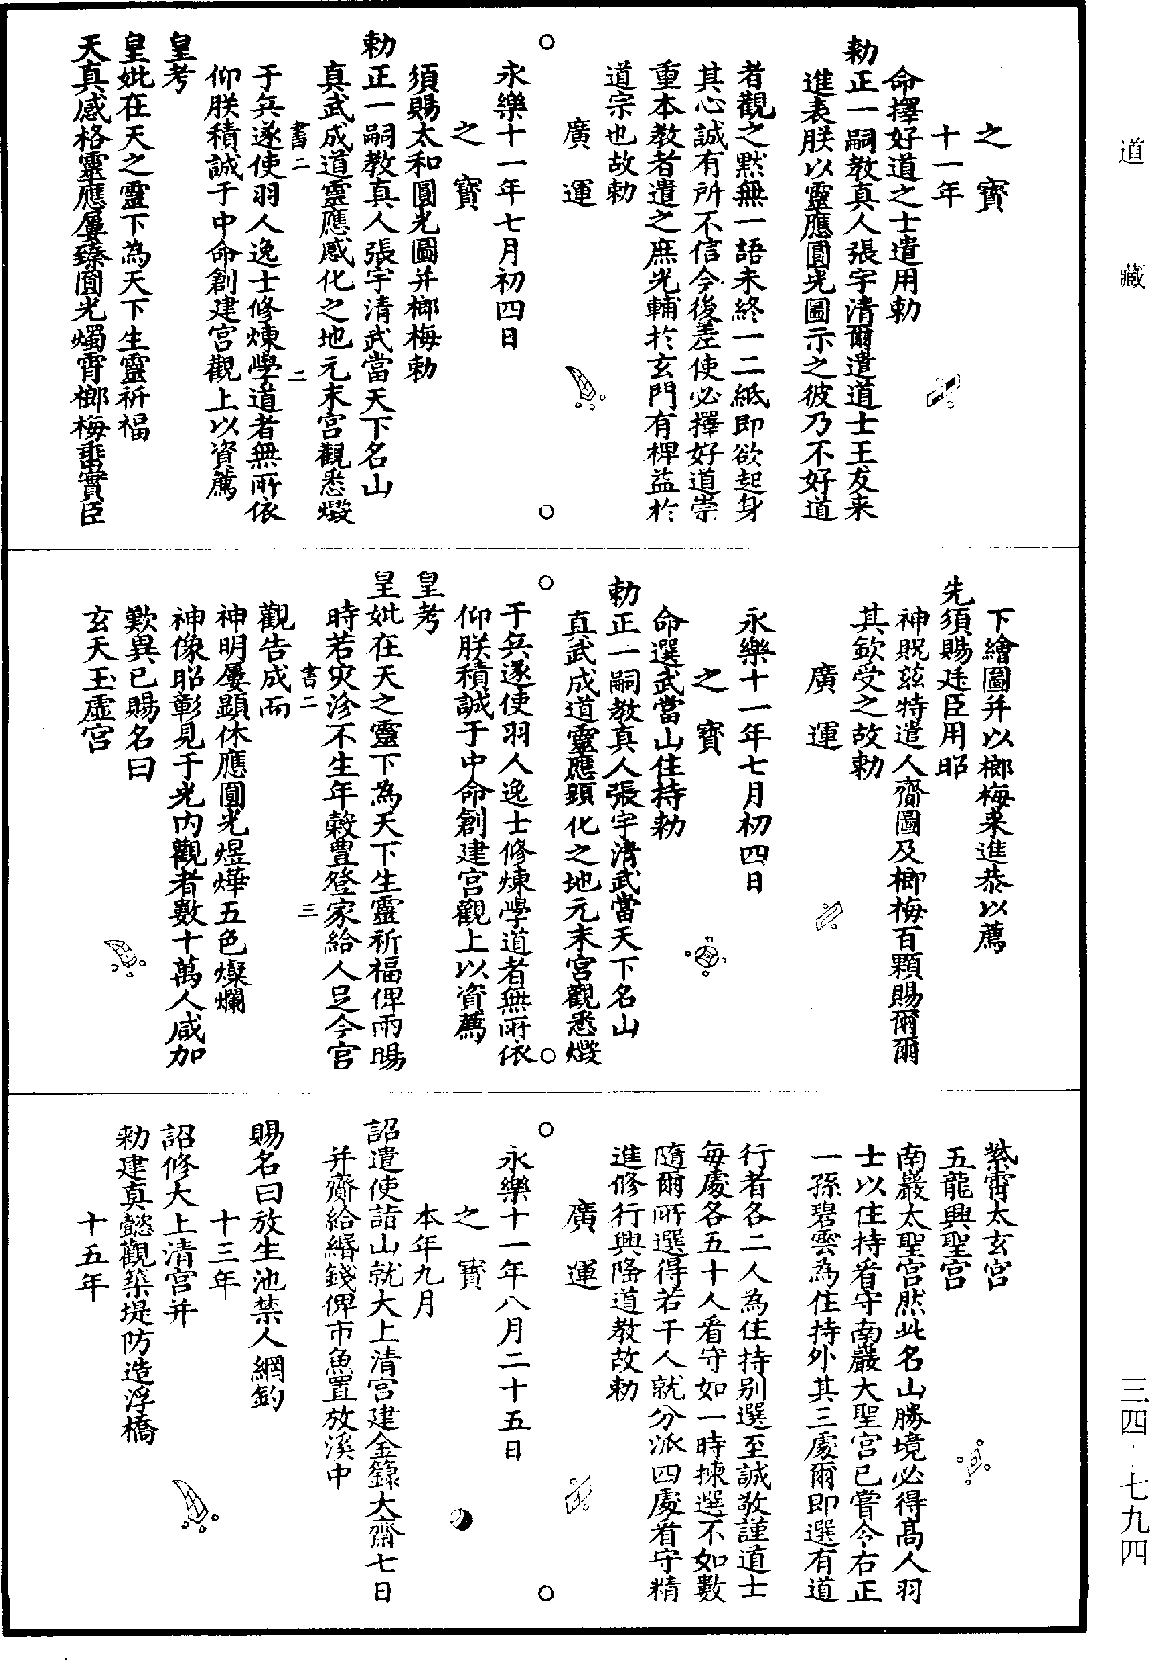 道藏
之寶
十一年
命擇好道之士遣用勅
勅正一嗣教真人張宇清爾遣道士王友来
進表朕以靈應圓光圖示之彼乃不好道
者觀之黙無一語未終一二紙即欲起身
其心誠有所不信今後差使必擇好道崇
重本教者遣之庶光輔於玄門有裨益於
道宗也故勅
廣運
永樂十一年七月初四日
之寶
須賜太和圓光圖并榔梅勅
勅正一嗣教真人張宇清武當天下名山
真武成道靈應感化之地元末宮觀悉燬
書二 二
于兵遂使羽人逸士修煉學道者無所依
仰朕積誠于中命創建宮觀上以資薦
皇考
皇妣在天之靈下為天下生靈祈福
天真感格靈應屢臻圓光燭霄榔梅垂實臣
下繪圖并以榔梅来進恭以薦
先須賜廷臣用昭
神貺兹特遣人齎圖及榔梅百顆賜爾爾
其欽受之故勅
廣運
永樂十一年七月初四日
之寶
命選武當山住持勅
勅正一嗣教真人張宇清武當天下名山
真武成道靈應顕化之地元末宮觀悉燬
于兵遂使羽人逸士修煉學道者無所依
仰朕積誠于中命創建宮觀上以資薦
皇考
皇妣在天之靈下為天下生靈祈福俾雨暘
時若灾沴不生年榖豊登家給人足今宮
書二 三
觀告成而
神明屢顯休應圓光煜燁五色燦爛
神像昭彰見于光内觀者數十萬人咸加
歎異已賜名曰
玄天玉虛宮
紫霄太玄宮
五龍興聖宮
南巖太聖宮然此名山勝境必得高人羽
士以住持看守南巖大聖宮已嘗令右正
一孫碧雲為住持外其三處爾即選有道
行者各二人為住持别選至誠敬謹道士
每處各五十人看守如一時揀選不如數
隨爾所選得若干人就分派四處看守精
進修行興隆道教故勅
廣運
永樂十一年八月二十五日
之寶
本年九月
詔遣使詣山就大上清宮建金籙大齋七日
并齎給緡錢俾市魚置放溪中
賜名曰放生池禁人網釣
十三年
詔修大上清宮并
勅建真懿觀築堤防造浮橋
十五年
三四·七九四